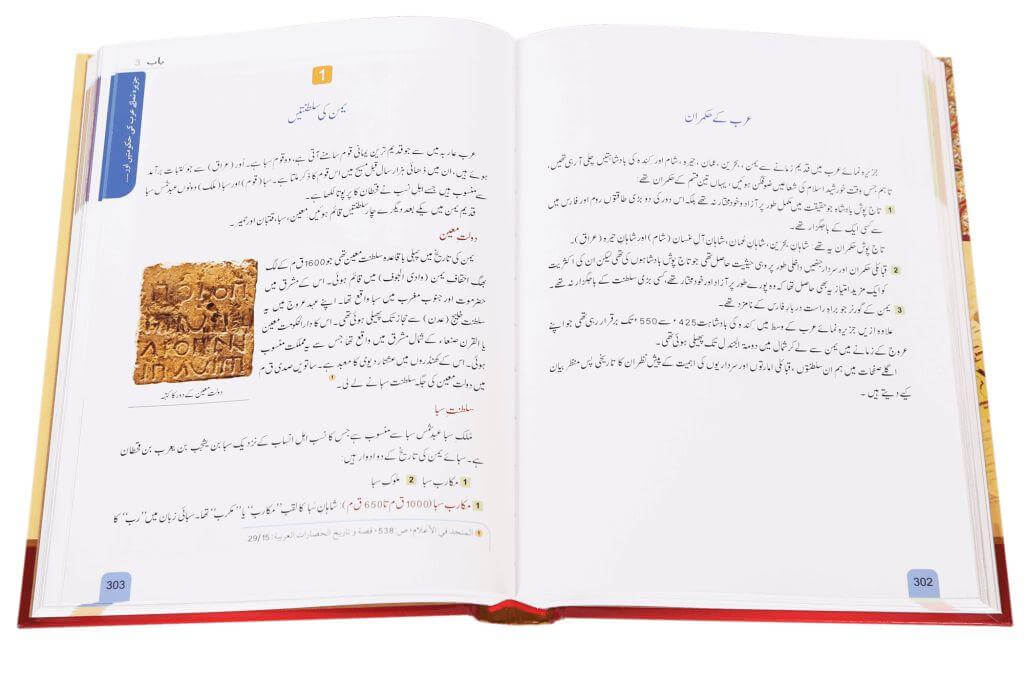 عرب کے حکمران
جزیرہ نمائے عرب میں قدیم زمانے سے یمن، بحرین، عمان، حیرہ، شام اور کندہ کی بادشاہتیں چلی آ رہی تھیں،
تاہم جس وقت خورشید اسلام کی شعاعیں ضوفگن ہوئیں، یہاں تین قسم کے حکمران تھے:
1 تاج پوش بادشاہ جو حقیقت میں مکمل طور پر آزاد و خود مختار نہ تھے بلکہ اس دور کی دو بڑی طاقتوں روم اور فارس میں
سے کسی ایک کے باجگزار تھے۔
تاج پوش حکمران یہ تھے: شاہانِ بحرین، شاہانِ عُمان، شاہانِ آلِ غسان (شام) اور شاہانِ حیرہ (عراق)۔
2 قبائلی حکمران اور سردار جنھیں داخلی طور پر وہی حیثیت حاصل تھی جو تاج پوش بادشاہوں کی تھی لیکن ان کی اکثریت
کو ایک مزید امتیاز یہ بھی حاصل تھا کہ وہ پورے طور پر آزاد اور خود مختار تھے، کسی بڑی سلطنت کے باجگزار نہ تھے۔
3 یمن کے گورنر جو براہِ راست دربارِ فارس کے نامزد تھے۔
علاوہ ازیں جزیرہ نمائے عرب کے وسط میں کندہ کی بادشاہت 425ء سے 550ء تک برقرار رہی تھی جو اپنے
عروج کے زمانے میں یمن سے لے کر شمال میں دومۃ الجندل تک پھیلی ہوئی تھی۔
اگلے صفحات میں ہم ان سلطنتوں، قبائلی امارتوں اور سرداریوں کی اہمیت کے پیشِ نظر ان کا تاریخی پس منظر بیان
کیے دیتے ہیں۔
302
باب 3
جزیرہ نمائے عرب کی حکومتیں اور....
1
یمن کی سلطنتیں
عرب عاربہ میں سے جو قدیم ترین یمانی قوم سامنے آتی ہے، وہ قومِ سبا ہے۔ اُور (عراق) سے جو کتبات برآمد
ہوئے ہیں، ان میں ڈھائی ہزار سال قبل مسیح میں اس قوم کا ذکر ملتا ہے۔ سبا (قوم) اور سبا (ملک) دونوں عبد شمس سبا
سے منسوب ہیں جسے اہل نسب نے قحطان کا پڑپوتا لکھا ہے۔
قدیم یمن میں یکے بعد دیگرے چار سلطنتیں قائم ہوئیں: معین، سبا، قتبان اور حمیر۔
دولت معین
یمن کی تاریخ میں پہلی باقاعدہ سلطنت معین تھی جو 1600 ق م کے لگ
بھگ احقاف یمن (وادی الجوف) میں قائم ہوئی۔ اس کے مشرق میں
حضرموت اور جنوب مغرب میں سبا واقع تھا۔ اپنے عہد عروج میں یہ
سلطنت خلیج (عدن) سے حجاز تک پھیلی ہوئی تھی۔ اس کا دارالحکومت معین
یا القرن صنعاء کے شمال مشرق میں واقع تھا جس سے یہ مملکت منسوب
ہوئی۔ اس کے کھنڈروں میں عشتار دیوی کا معبد ہے۔ ساتویں صدی ق م
میں دولت معین کی جگہ سلطنت سبا نے لے لی۔ 1
دولت معین کے دور کا کتبہ
سلطنتِ سبا
مُلک سبا عبد شمس سبا سے منسوب ہے جس کا نسب اہل انساب کے نزدیک سبا بن یشجب بن یعرب بن قحطان
ہے۔ سبائے یمن کی تاریخ کے دو ادوار ہیں:
1 مکارب سبا 2 ملوک سبا
1 مکارب سبا (1000 ق م تا 650 ق م): شاہانِ سبا کا لقب ”مکارب“ یا ”مکرب“ تھا۔ سبائی زبان میں ”رب“ کا
1 المنجد في الأعلام، ص: 538، قصة و تاريخ الحضارات العربية: 29/15
303